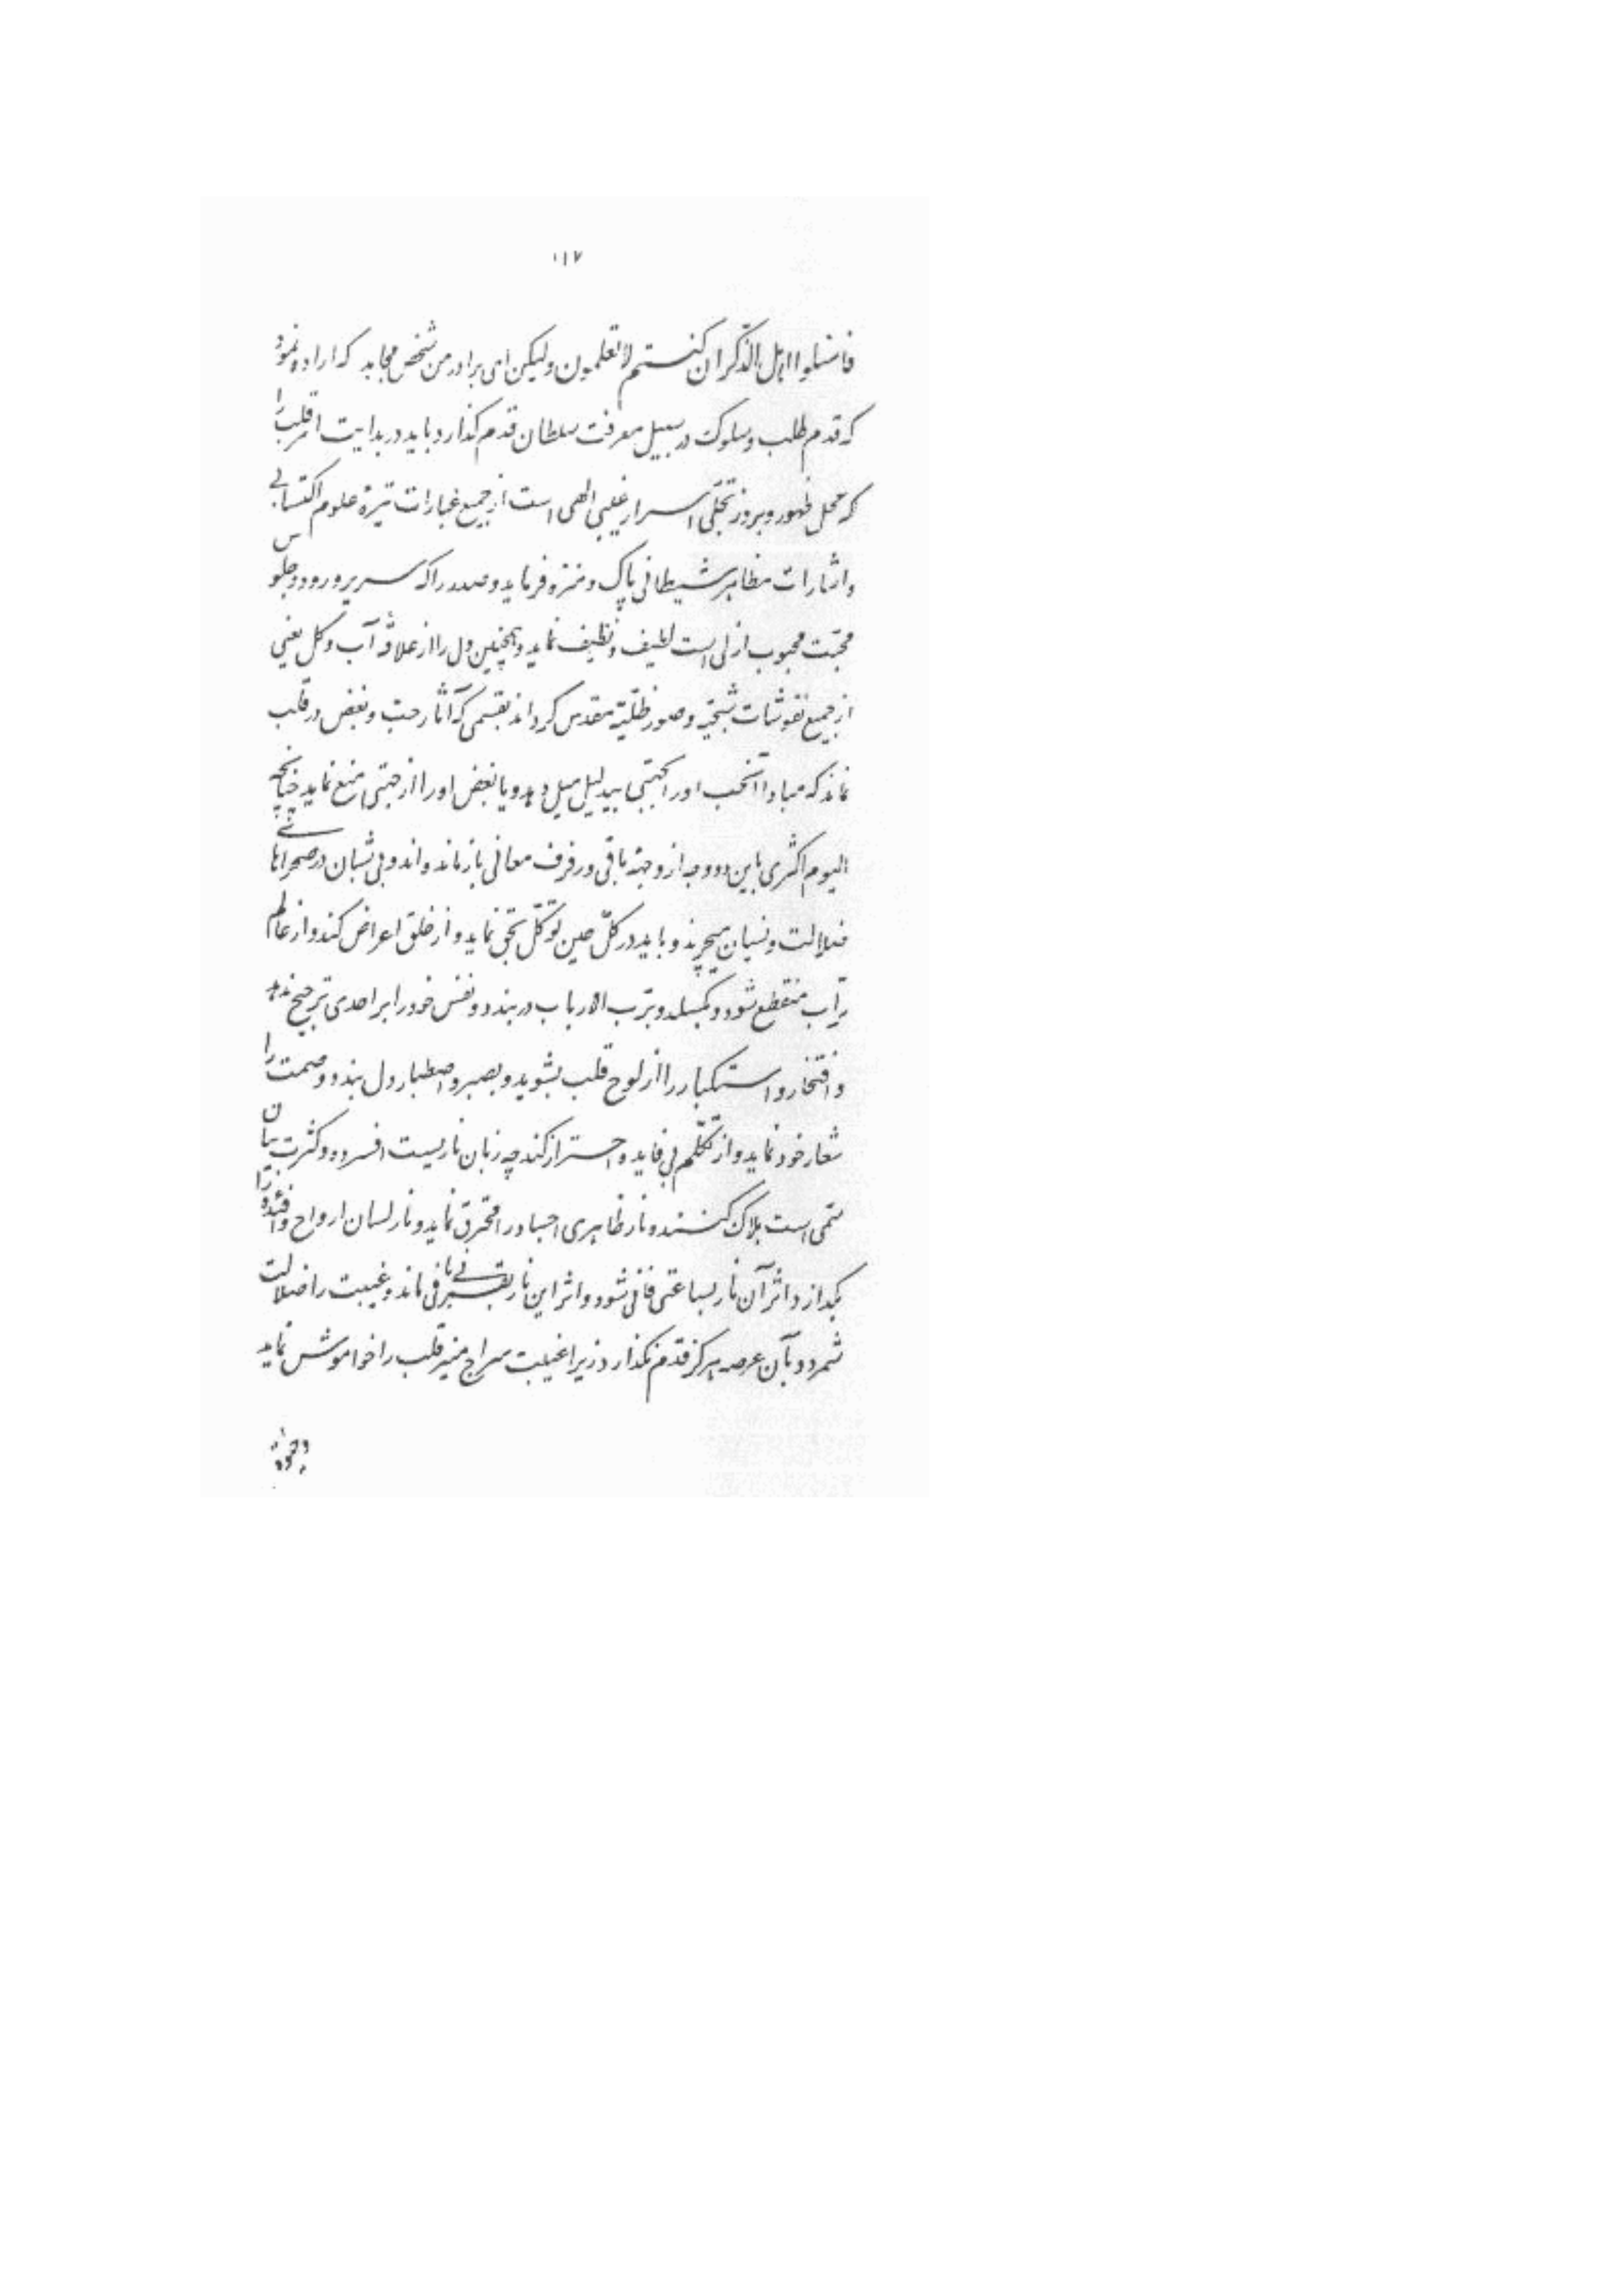 ۱۱۷
فاسئلوا اهل الذّکر ان کنتم لا تعلمون ولیکن ای برادر من شخص مجاهد که اراده نمود
که قدم طلب و سلوک در سبیل معرفت سلطان قدم گذارد باید در بدایت امر قلب را
که محلّ ظهور و بروز تجلّی اسرار غیبی الهی است از جمیع غبارات تیرهٔ علوم اکتسابی
و اشارات مظاهر شیطانی پاک و منزه فرماید و صدر را که سریر ورود و جلوس
محبّت محبوب ازلی است لطیف و نظیف نماید و همچنین دل را از علاقهٔ آب و گل یعنی
از جمیع نقوشات شبحیّه و صور ظلّیّه مقدس گرداند بقسمی که آثار حبّ و بغض در قلب
نماند که مبادا آنحب او را بجهتی بیدلیل میل دهد و یا بغض او را از جهتی منع نماید چنانچه
الیوم اکثری باین دو وجه از وجهه باقی و رفرف معانی باز مانده‌اند و بی شبان در صحراهای
ضلالت و نسیان میچرند و باید در کلّ حین توکّل بحقّ نماید و از خلق اعراض کند و از عالم
تراب منقطع شود و بگسلد و بربّ الارباب در بندد و نفس خود را بر احدی ترجیح ندهد
و افتخار و استکبار را از لوح قلب بشوید و بصبر و اصطبار دل بندد و صمت را
شعار خود نماید و از تکلّم بی فایده احتراز کند چه زبان ناریست افسرده و کثرت بیان
سمّی است هلاک کننده و نار ظاهری اجساد را محترق نماید و نار لسان ارواح و افئده را
بگدازد اثر آن نار بساعتی فانی شود و اثر این نار بقرنی باقی ماند و غیبت را ضلالت
شمرد و بآن عرصه هرگز قدم نگذارد زیرا غیبت سراج منیر قلب را خواموش نماید